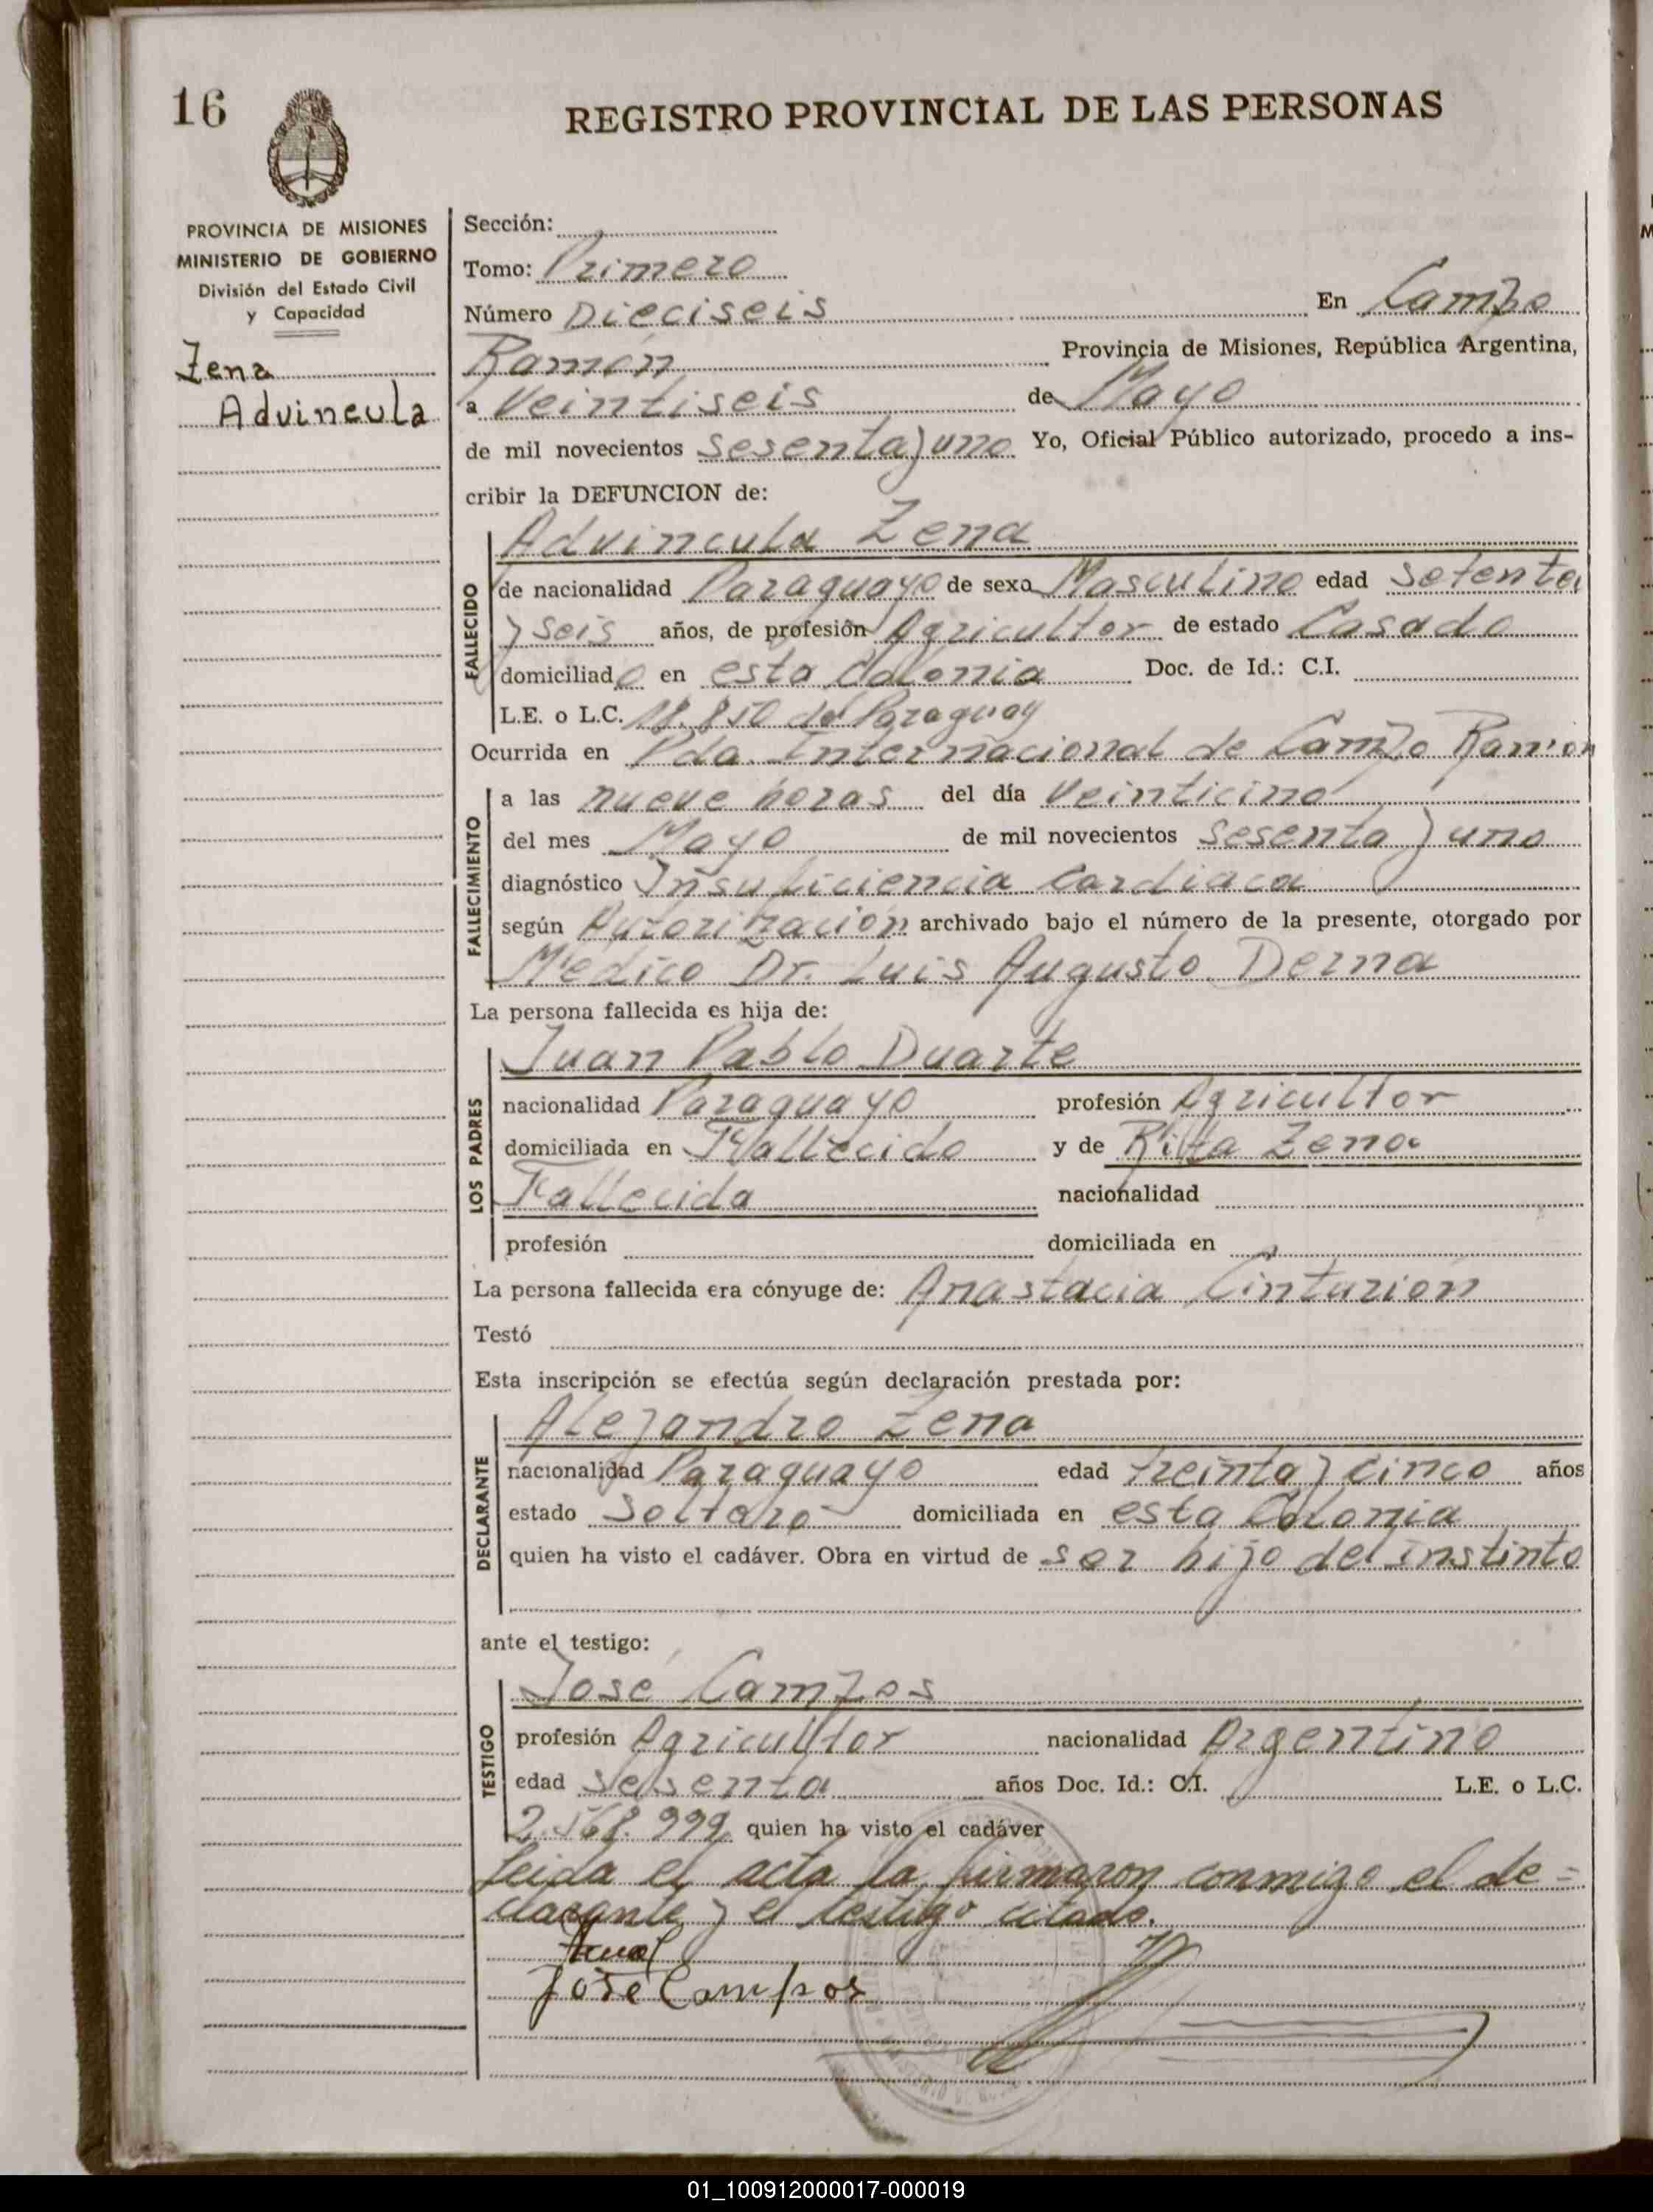 16
REGISTRO PROVINCIAL DE LAS PERSONAS
PROVINCIA DE MISIONES
MINISTERIO DE GOBIERNO
División del Estado Civil
y Capacidad
Zena
Advincula
Sección:
Tomo: Primero
Número Dieciseis En Campo
Ramón Provincia de Misiones, República Argentina,
a Veintiseis de Mayo
de mil novecientos sesenta y uno Yo, Oficial Público autorizado, procedo a ins-
cribir la DEFUNCION de:
FALLECIDO
Advincula Zena
de nacionalidad Paraguayo de sexo Masculino edad setenta
y seis años, de profesión Agricultor de estado Casado
domiciliado en esta Colonia Doc. de Id.: C.I.
L.E. o L.C. 18.850 del Paraguay
Ocurrida en Pda. Internacional de Campo Ramón
FALLECIMIENTO
a las nueve horas del día Veinticino
del mes Mayo de mil novecientos sesenta y uno
diagnóstico Insuficiencia Cardiaca
según Autorización archivado bajo el número de la presente, otorgado por
Médico Dr. Luis Augusto Derna
La persona fallecida es hija de:
LOS PADRES
Juan Pablo Duarte
nacionalidad Paraguayo profesión Agricultor
domiciliada en Fallecido y de Ritta Zena
Fallecida nacionalidad
profesión domiciliada en
La persona fallecida era cónyuge de: Anastacia Cinturión
Testó
Esta inscripción se efectúa según declaración prestada por:
DECLARANTE
Alejandro Zena
nacionalidad Paraguayo edad treinta y cinco años
estado Soltero domiciliada en esta Colonia
quien ha visto el cadáver. Obra en virtud de ser hijo del instinto
ante el testigo:
TESTIGO
José Campos
profesión Agricultor nacionalidad Argentino
edad sesenta años Doc. Id.: C.I. L.E. o L.C.
2.568.999 quien ha visto el cadáver
Leida el acta la firmaron conmigo el de=
clarante y el testigo citado.
José Campos
01_100912000017-000019